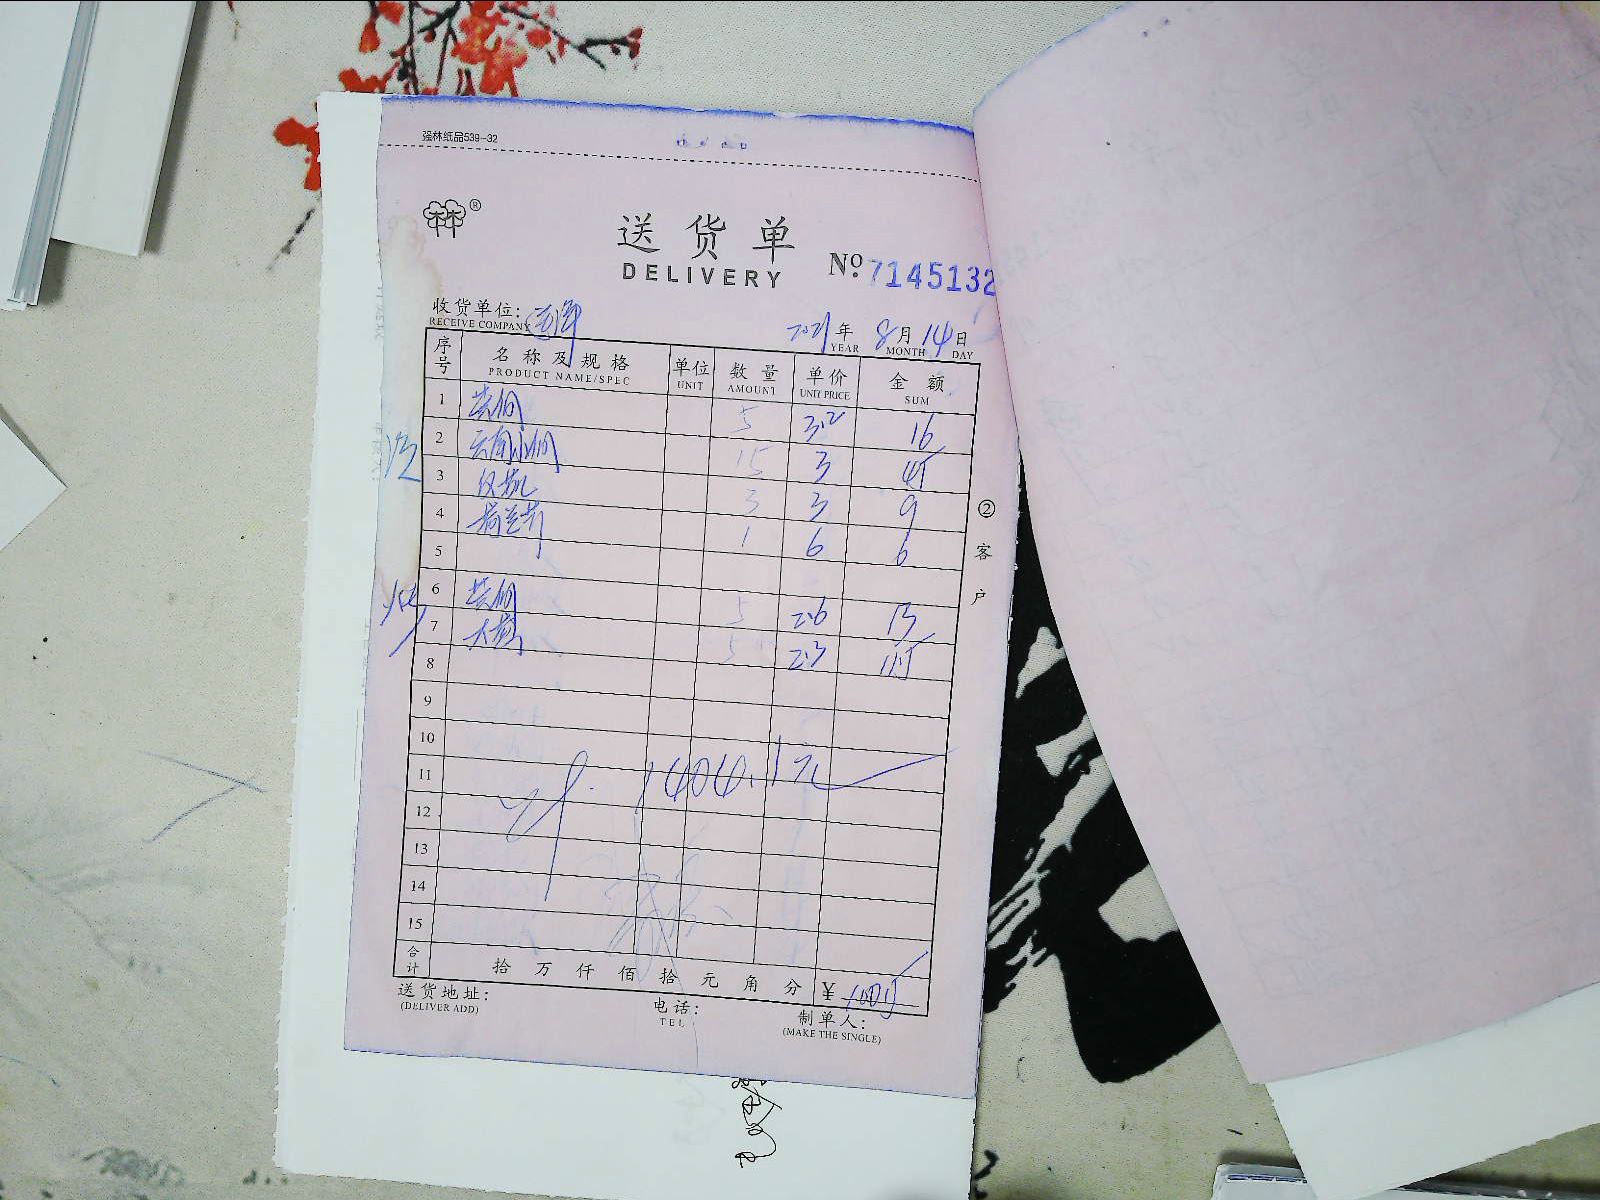 强林纸品539-32
送货单
DELIVERY
No. 7145132
收货单位:
RECEIVE COMPANY
2021年 8月 14日
YEAR MONTH DAY
序号 名称及规格 单位 数量 单价 金额
PRODUCT NAME/SPEC UNIT AMOUNT UNIT PRICE SUM
1 5 3.2 16
2 15 3 45
3 3 3 9
4 荷兰芹 1 6 6
5
6 5 2.6 13
7 5 2.3 11.5
8
9
10
11 1404.1元
12
13
14
15
合计 拾 万 仟 佰 拾 元 角 分 ¥ 100.5
送货地址:
(DELIVER ADD)
电话:
TEL
制单人:
(MAKE THE SINGLE)
② 客户